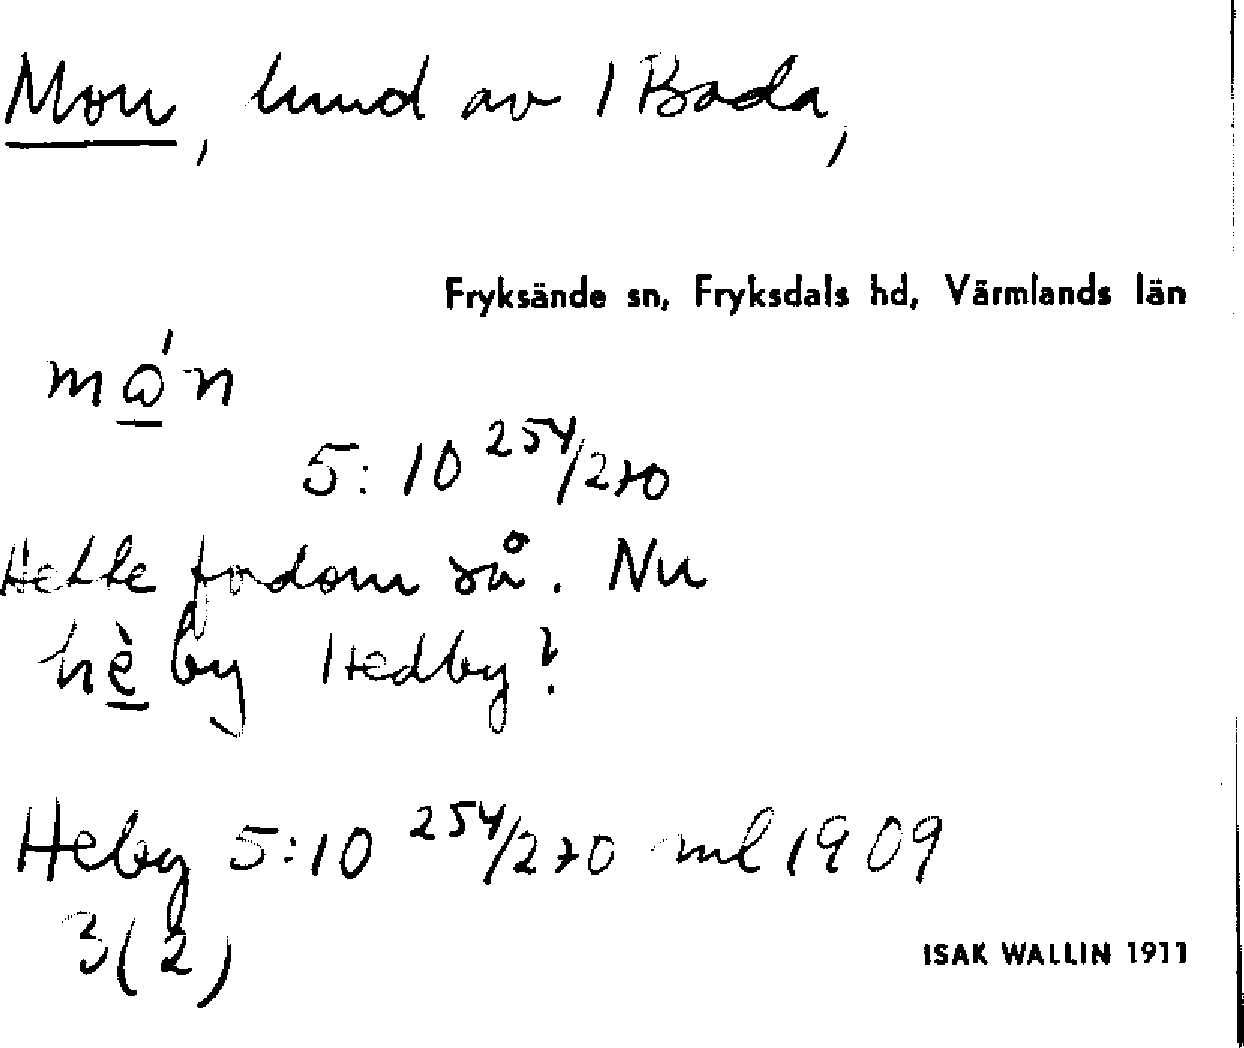 Mon, hmd av 1 Bada,
Fryksände sn, Fryksdals hd, Värmlands län
mǫ́n
5:10 254/270
Hette fordom så. Nu
hè̱by Hedby!
Heby 5:10 254/270 ml 1909
3(2)
ISAK WALLIN 1911